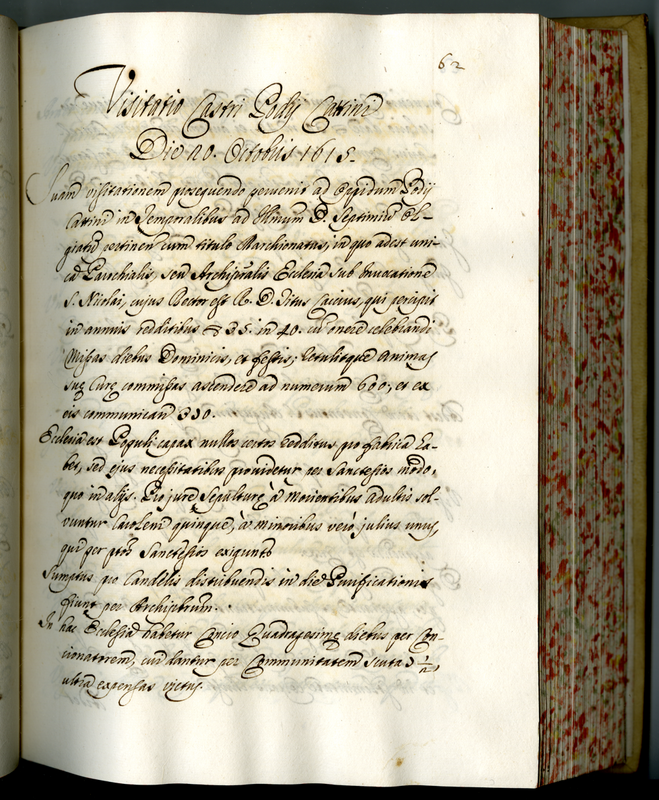 62
Visitatio Castri Podij Cattini
Die 20. Octobris 1615.
Suam visitationem prosequendo pervenit ad Oppidum Podij
Cattini in Temporalibus ad Illmum D. Septimium Ol-
giatū pertinen cum titulo Marchionatus, in quo adest uni-
ca Parochialis, seu Archipralis Ecclesia sub Invocatione
S. Nicolai, cujus Rector est R. D. Titus Caccius, qui percipit
in annuis redditibus 35. in 40. cū onere celebrandi
Missas diebus Dominicis, et festis; retulitque animas
suę Curę commissas ascendere ad numerum 600; et ex
eis communican 330.
Ecclesia est Populi capax nullos certos redditus pro fabrica ha-
bet, sed ejus necessitatibus providetur per Sanctesios modo,
quo in alijs. Pro jure Sepulturę à morientibus adultis sol-
vuntur Caroleni quinque, à minoribus verò julius unus,
qui per ptos Sanctesios exiguntr
Sumptus pro Candelis distribuendis in die Purificationis
fiunt per Archiprbrum.
In hac Ecclesia habetur Concio Quadragesimę diebus per Con-
cionatorem, cui dantur per Communitatem scuta
ultra expensas victus.